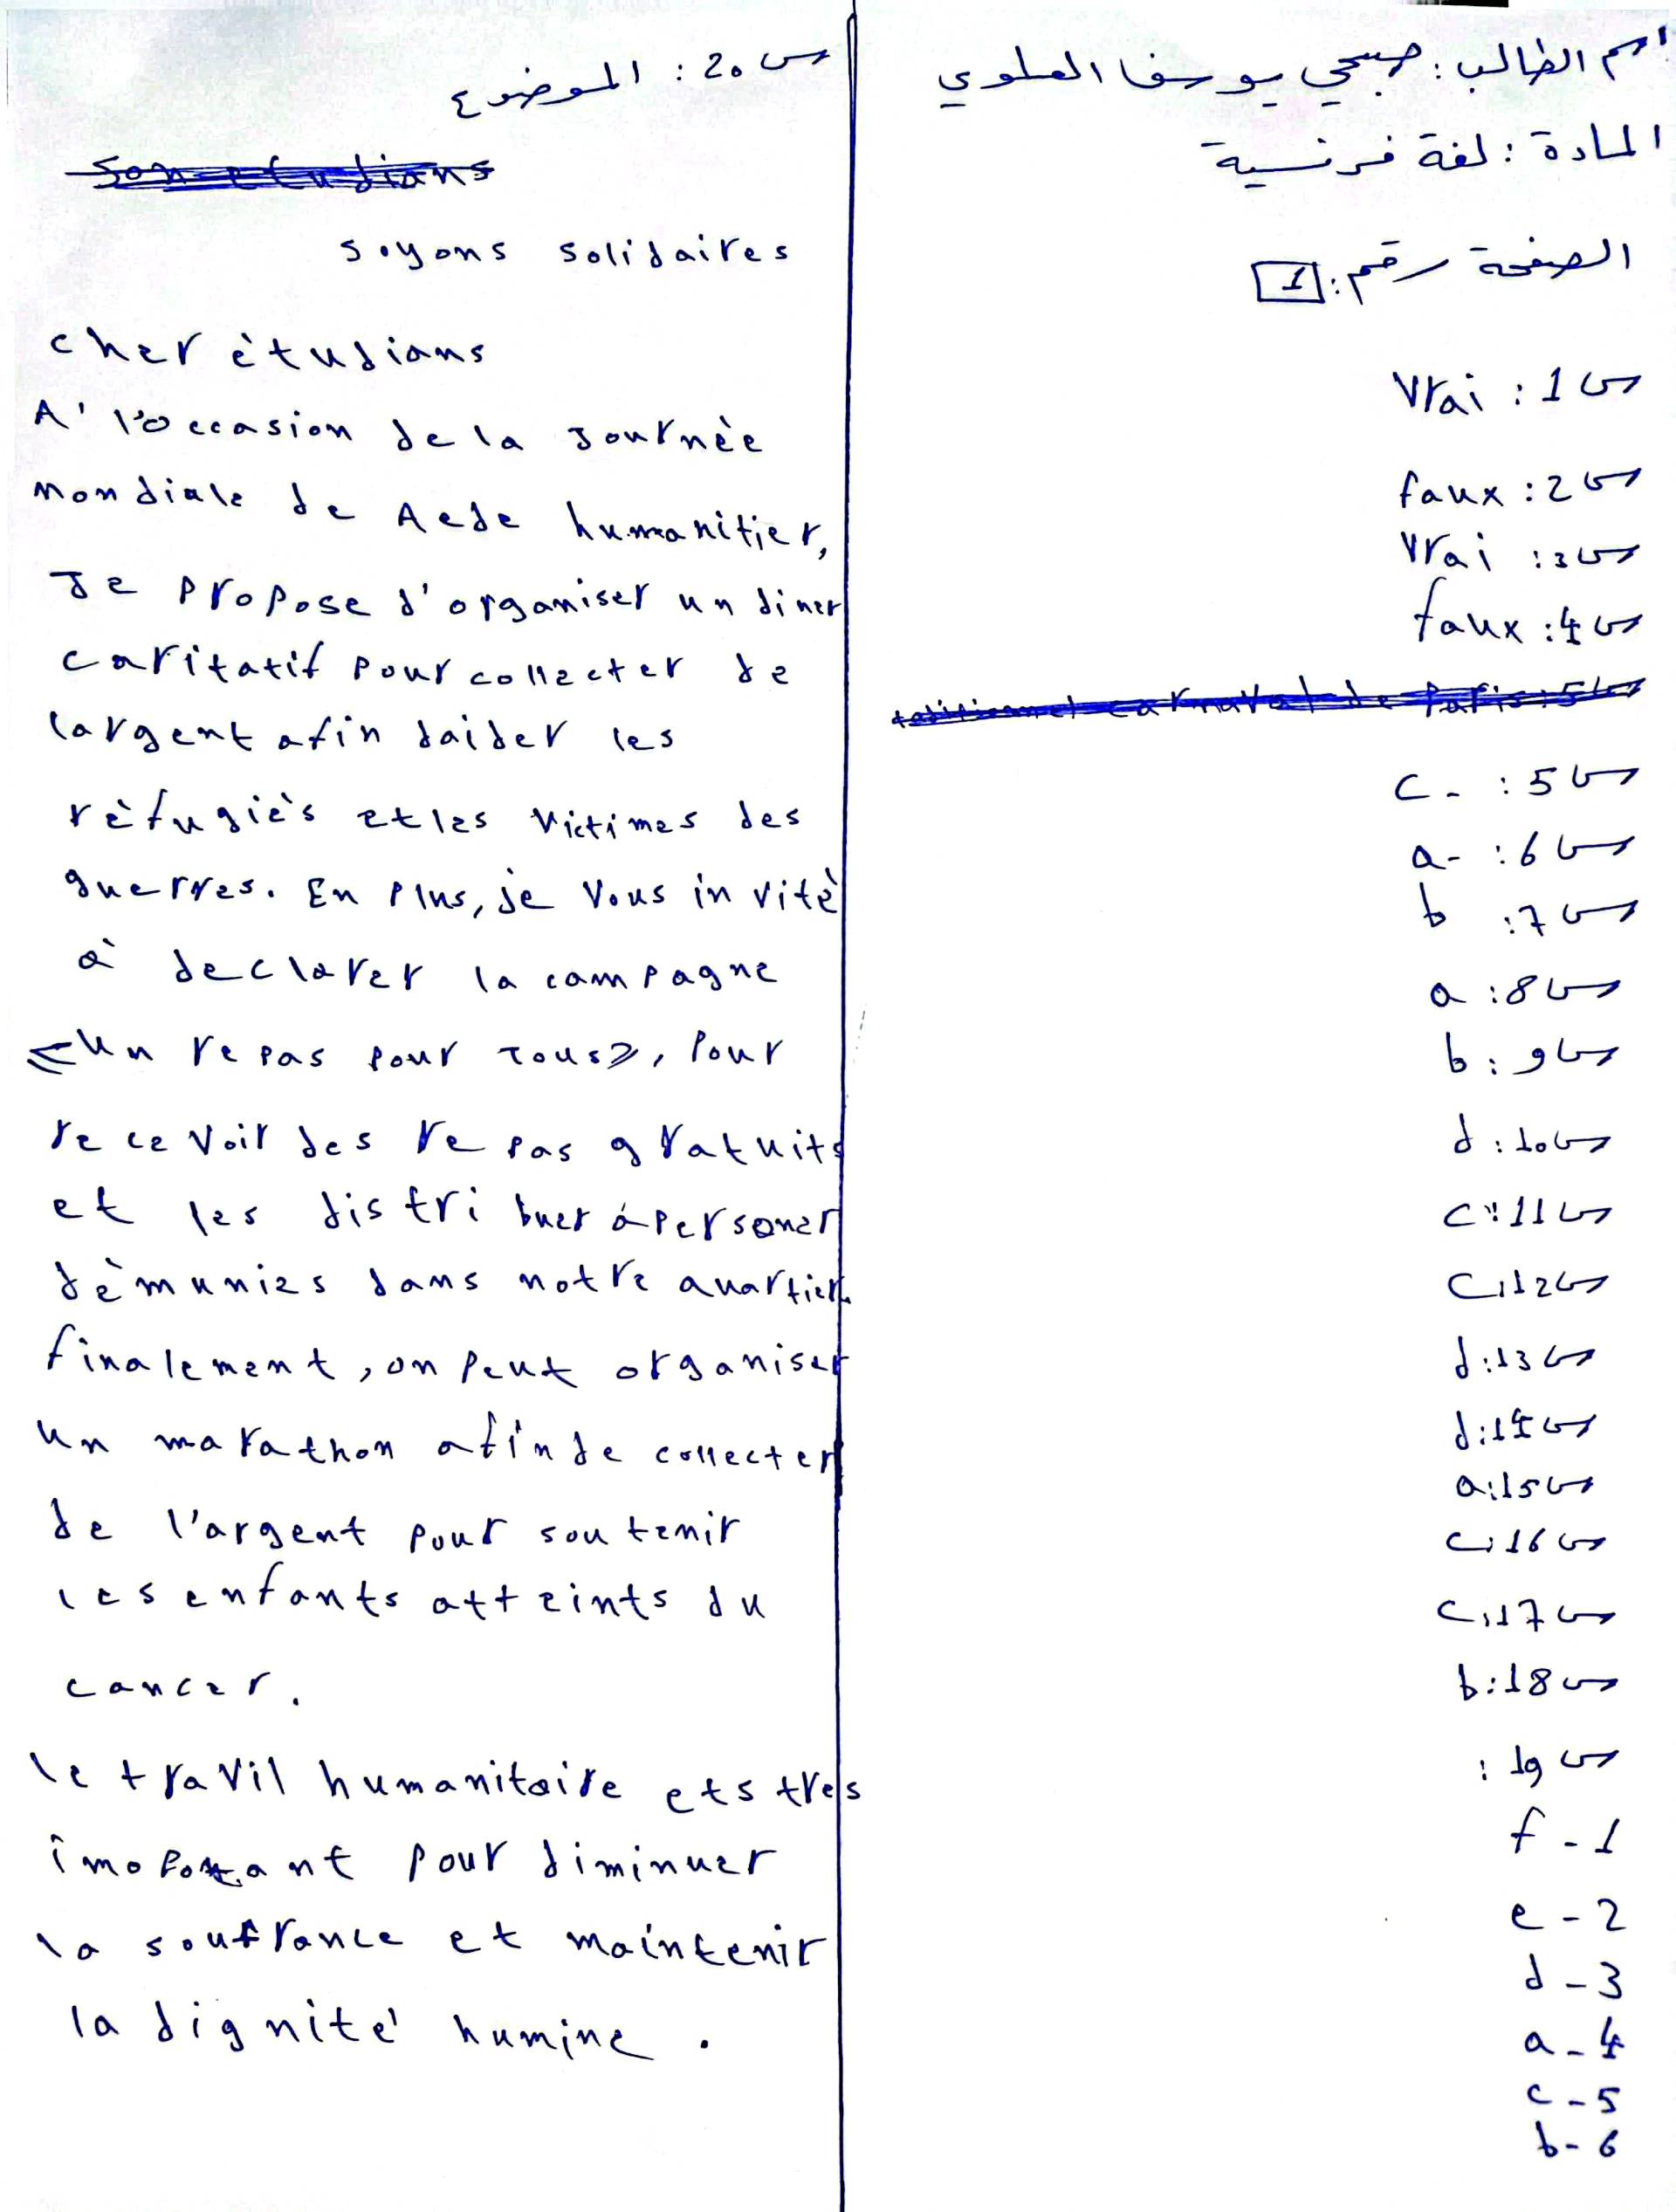 اسم الطالب: صبحي يوسف العلوي
المادة: لغة فرنسية
الصفحة رقم: 1
س1: Vrai
س2: faux
س3: Vrai
س4: faux
س5: c-
س6: a-
س7: b
س8: a
س9: b
س10: d
س11: c
س12: c
س13: d
س14: d
س15: a
س16: c
س17: c
س18: b
س19:
1 - f
2 - e
3 - d
4 - a
5 - c
6 - b
س20: الموضوع
Son etudians
soyons solidaires
cher ètudians
A' l'occasion de la Journèe
Mondiale de Aede humanitier,
Je propose d'organiser un diner
caritatif pour collecter de
largent afin daider les
rèfugiès et les victimes des
guerres. En plus, je vous invitè
à declarer la campagne
«Un repas pour Tous», Pour
recevoir des repas gratuits
et les distribuer à personer
dèmunies dans notre quartier.
finalement, on peut organiser
un marathon afin de collecter
de l'argent pour soutenir
les enfants atteints du
cancer.
le travil humanitaire ets tres
imoportant pour diminuer
la soufrance et maintenir
la dignité humine.